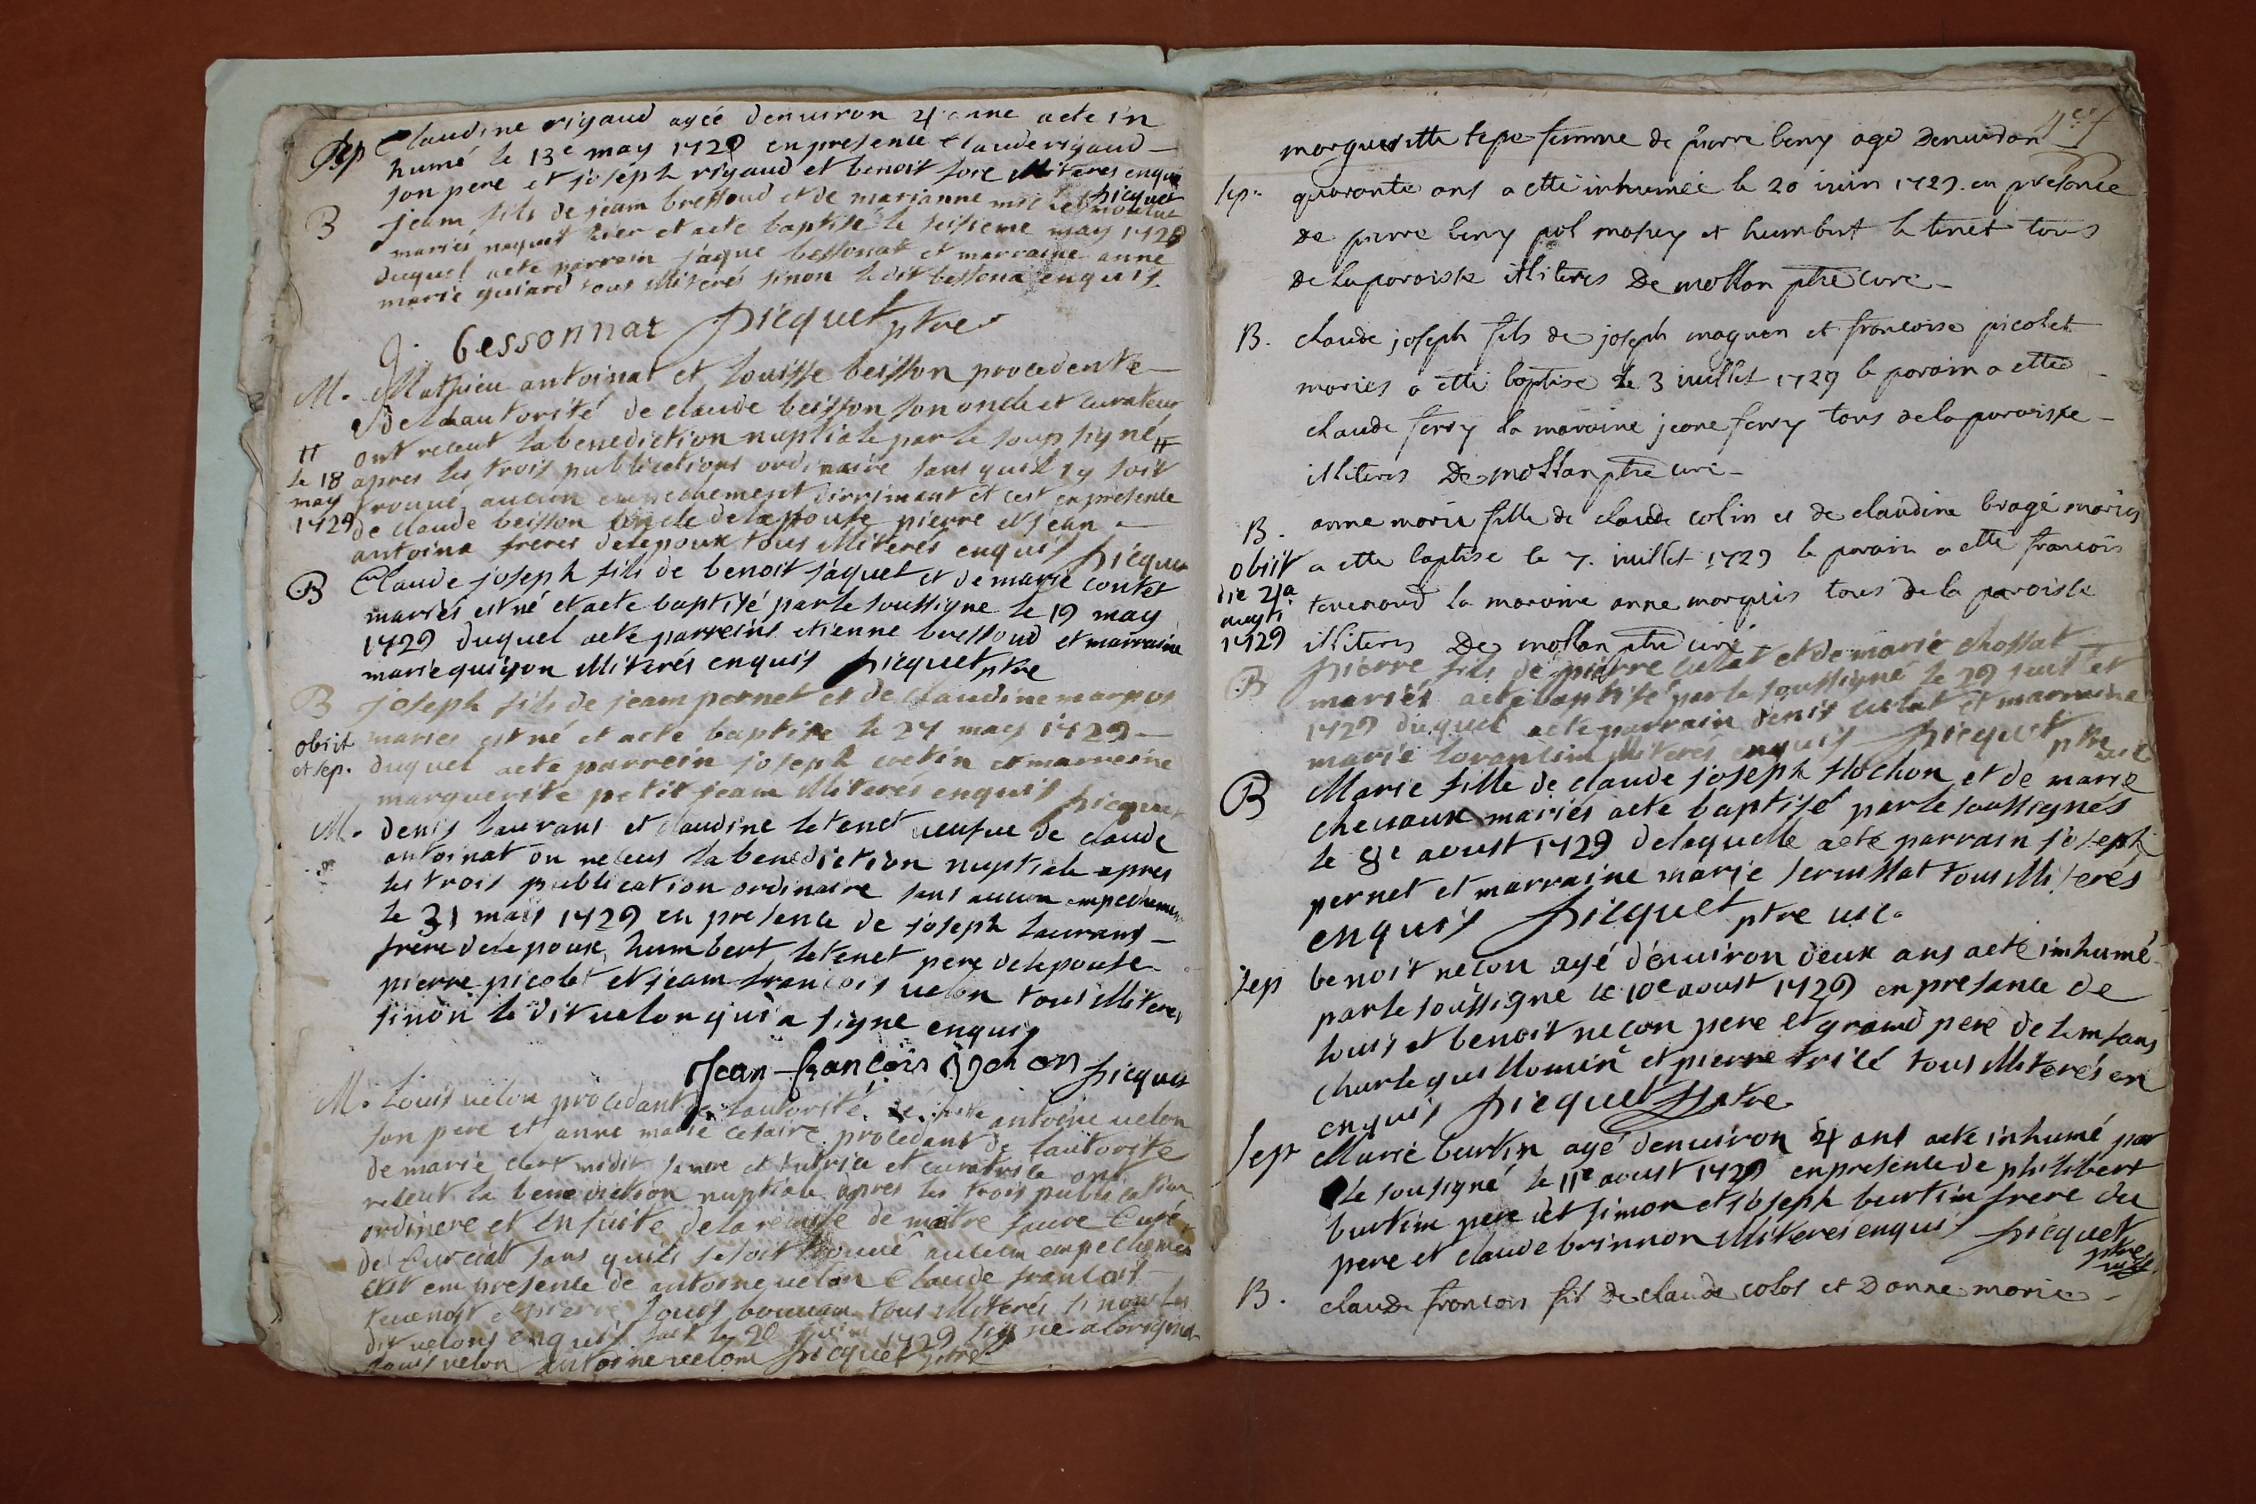 Sep Claudine rigaud agée denuiron 4 anne aete in
humé le 13e may 1729 en presence Claude rigaud
son pere et joseph rigaud et benoit fore illiteres enquis
picquet
B jean fils de jean bressoud et de marianne
mariés naquit hier et aete baptisé le seisieme may 1729
duquel aete parrein jaque bessonat et marraine anne
marie guiard tous illiterés sinon le dit bessona enquis.
J. bessonnat picquet ptre
M. Mathieu antoinat et Louisse beisson procedente
De lautorité de claude beisson son oncle et curateur
ont receut la benediction nuptiale par le soussigné #
# le 18 may 1729
apres les trois publications ordinaire sans quil sy soit
trouué aucun empechement dirriment et cest en presence
de claude beisson oncle de lepouse pierre et jean
antoina freres delepoux tous illiterés enquis picquet
B Claude joseph fils de benoit jaquet et de marie contet
mariés est né et aete baptisé par le soussigne le 19 may
1729 duquel aete parreins etienne bressoud et marraine
marie guigon illiterés enquis picquet ptre
B joseph fils de jean pernet et de claudine marpos
obiit et sep.
maries est né et aete baptise le 27 may 1729
duquel aete parrein joseph cretin et marreine
marguerite petit jean illiterés enquis picquet
M. denis laurans et claudine letenet ueufue de claude
antoinat on receus la benediction nuptiale apres
les trois publication ordinaire sans aucun empechement
le 31 may 1729 en presence de joseph laurans
frere delepoux, humbert letenet pere delepouse
pierre picolet et jean francois uelon tous illiteres
sinon le dit uelon qui a signe enquis
Jean-françois velon picquet
M. Louis uelon procedant de lautorité de antoine uelon
son pere et anne marie cesaire procedant de lautorite
de marie sa mere et tutrice et curatrice ont
receut la benediction nuptiale apres les trois publication
ordinere et ensuite de la remisse de maitre faure Curé
de Curciat sans quils se soit trouué aucun empechement
cest em presence de antoine uelon Claude francois
teuenost et pierre Louis bouuam tous illiterés sinon les
dit uelons enquis fact le 20 1729 signe a loriginal
Louis uelon antoine uelom picquet ptre
marguerittte tepe femme de pierre beny age denuiron
Sep. quarante ans a etté inhumée le 20 iuin 1729. en presence
de pierre beny pol mosny et humbert le tenet tous
de la paroisse illiteres De mollan ptre curé
B. claude joseph fils de joseph magnen et francoise picolet
maries a etté baptise le 3 iuillet 1729 le parain a etté
claude ferry la maraine jeane ferry tous de la paroisse
illiteres De mollan ptre curé
B. anne marie fille de claude colin et de claudine bragé mariés
obiit die 21a augti 1729
a etté baptise le 7. iuillet 1729 le parain a etté francois
teuenoud la maraine anne marquis tous de la paroisse
illiteres De mollan ptre curé
B pierre fils de pierre culat et de marie chossat
mariés aete baptisé par le soussigné le 29 juillet
1729 duquel aete parrain denis culat et marraine
marie lorantim illiterés enquis picquet ptre uic
B Marie fille de claude joseph flochon et de marie
cheuaux mariés aete baptisé par le soussignés
le 8e aoust 1729 de laquelle aete parrain joseph
pernet et marraine marie seruillat tous illiterés
enquis picquet ptre uic.
sep benoit necon agé denuiron deux ans aete imhumé
par le soussigné le 10e aoust 1729 en presance de
louis et benoit necon pere et grand pere de lemfans
charle guillomin et pierre tricé tous illiterés en
enquis picquet ptre
sept Marie burtin agé denuiron 4 ans aete inhumé par
le sousigné le 11e aoust 1729 en presence de philibert
burtim pere et simon et joseph burtim frere du
pere et claude brinnon illiteres enquis picquet
ptre uic
B. claude francois fil de claude colos et Danne marie